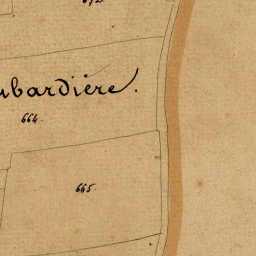 672
ubardière.
664.
665.